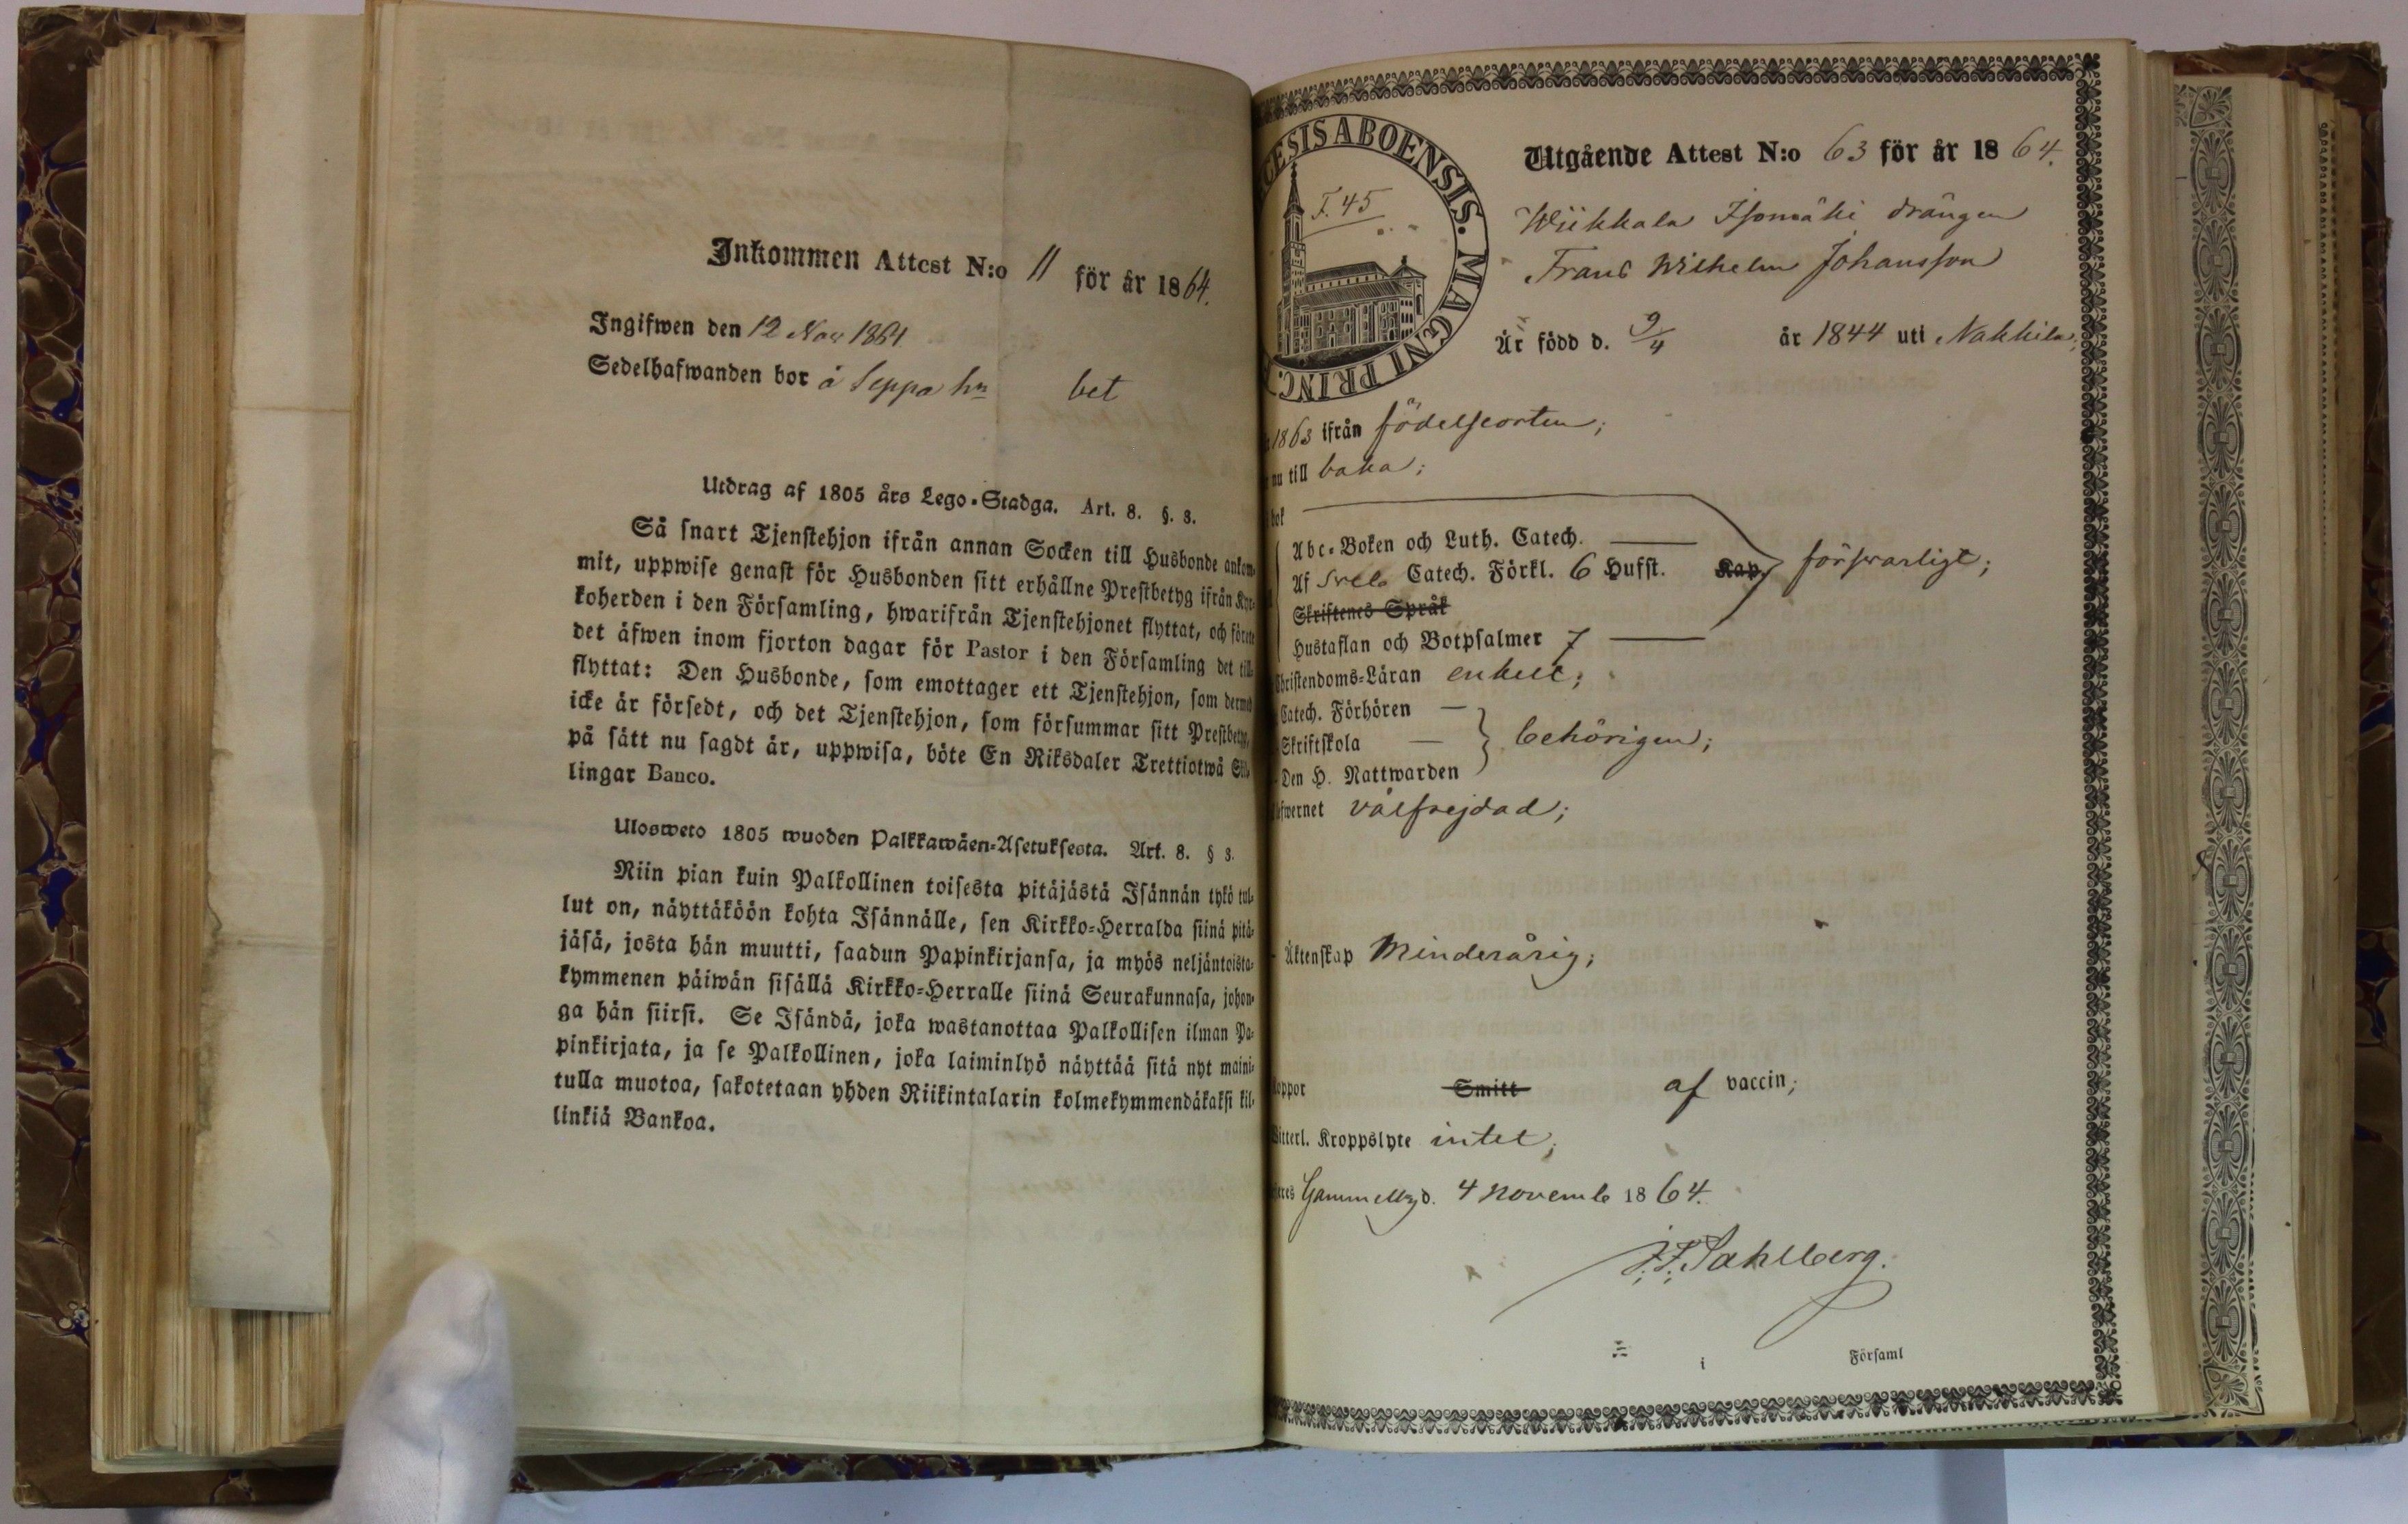 Inkommen Attest N:o 11 för år 1864.
Ingifwen den 12 Nov 1864
Sedelhafwanden bor å Seppä hn bet
Utdrag af 1805 års Lego-Stadga. Art. 8. §. 3.
Så snart Tjenstehjon ifrån annan Socken till Husbonde ankom-
mit, uppwise genast för Husbonden sitt erhållne Prestbetyg ifrån Kyr-
koherden i den Församling, hwarifrån Tjenstehjonet flyttat, och förete
det äfwen inom fjorton dagar för Pastor i den Församling det till-
flyttat: Den Husbonde, som emottager ett Tjenstehjon, som dermed
icke är försedt, och det Tjenstehjon, som försummar sitt Prestbetyg,
på sätt nu sagdt är, uppwisa, böte En Riksdaler Trettiotwå Skil-
lingar Banco.
Ulosweto 1805 wuoden Palkkawäen-Asetuksesta. Art. 8. § 3.
Niin pian kuin Palkollinen toisesta pitäjästä Isännän tykö tul-
lut on, näyttäköön kohta Isännälle, sen Kirkko-Herralda siinä pitä-
jäsä, josta hän muutti, saadun Papinkirjansa, ja myös neljäntoista-
kymmenen päiwän sisällä Kirkko-Herralle siinä Seurakunnasa, johon-
ga hän siirsi. Se Isändä, joka wastanottaa Palkollisen ilman Pa-
pinkirjata, ja se Palkollinen, joka laiminlyö näyttää sitä nyt maini-
tulla muotoa, sakotetaan yhden Riikintalarin kolmekymmendäkaksi kil-
linkiä Bankoa.
CESIS ABOENSIS. MAGNI PRINC.
F. 45
Utgående Attest N:o 63 för år 1864.
Wiikkala Isomäki drängen
Frans Wilhelm Johansson
Är född d. 9/4 år 1844 uti Nakkila;
1863 ifrån födelseorten;
nu till baka;
bok
Abc-Boken och Luth. Catech.
Af Sveb Catech. Förkl. 6 Hufst. Kap. försvarligt;
Skriftenes Språk
Hustaflan och Botpsalmer 7
Christendoms-Läran enkelt;
Catech. Förhören
Skriftskola behörigen;
Den H. Nattwarden
efwernet välfrejdad;
Äktenskap Minderårig;
koppor Smitt af vaccin;
itterl. Kroppslyte intet;
eres Gammelbyd. 4 Novemb 1864.
J. F. Sahlberg.
i Församl